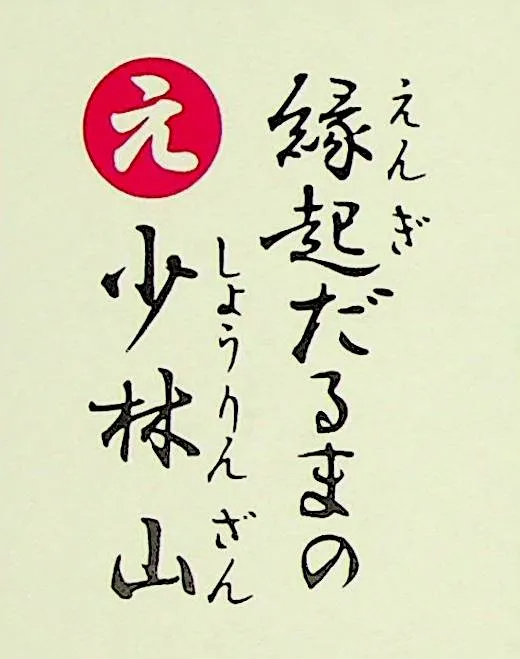 縁起だるまの
えんぎ
少林山
しょうりんざん
え